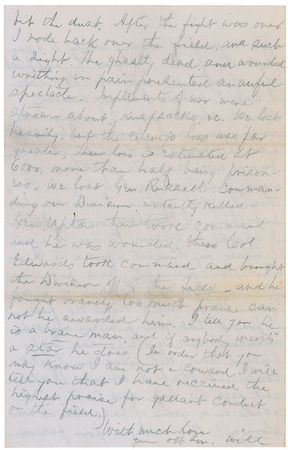 bit the dust. After the fight was over
I rode back over the field, and such
a sight. The ghastly dead and wounded
writhing in pain presented an awful
spectacle. Implements of war were
strewn about, knapsacks, &c. We lost
heavily, but the enemy's loss was far
greater, their loss is estimated at
6000, more than half being prison-
ers. We lost Gen. Russell, comman-
ding our Division instantly killed.
Gen Upton then took command
and he was wounded, then Col.
Edwards took command and brought
the Division off the field - and he
fought bravely, too much praise can
not be awarded him. I tell you he
is a brave man, and if anybody merits
a star he does. (In order that you
may know I am not a coward I will
tell you that I have received the
highest praise for gallant conduct
on the field.)
With much love
your aff. Will